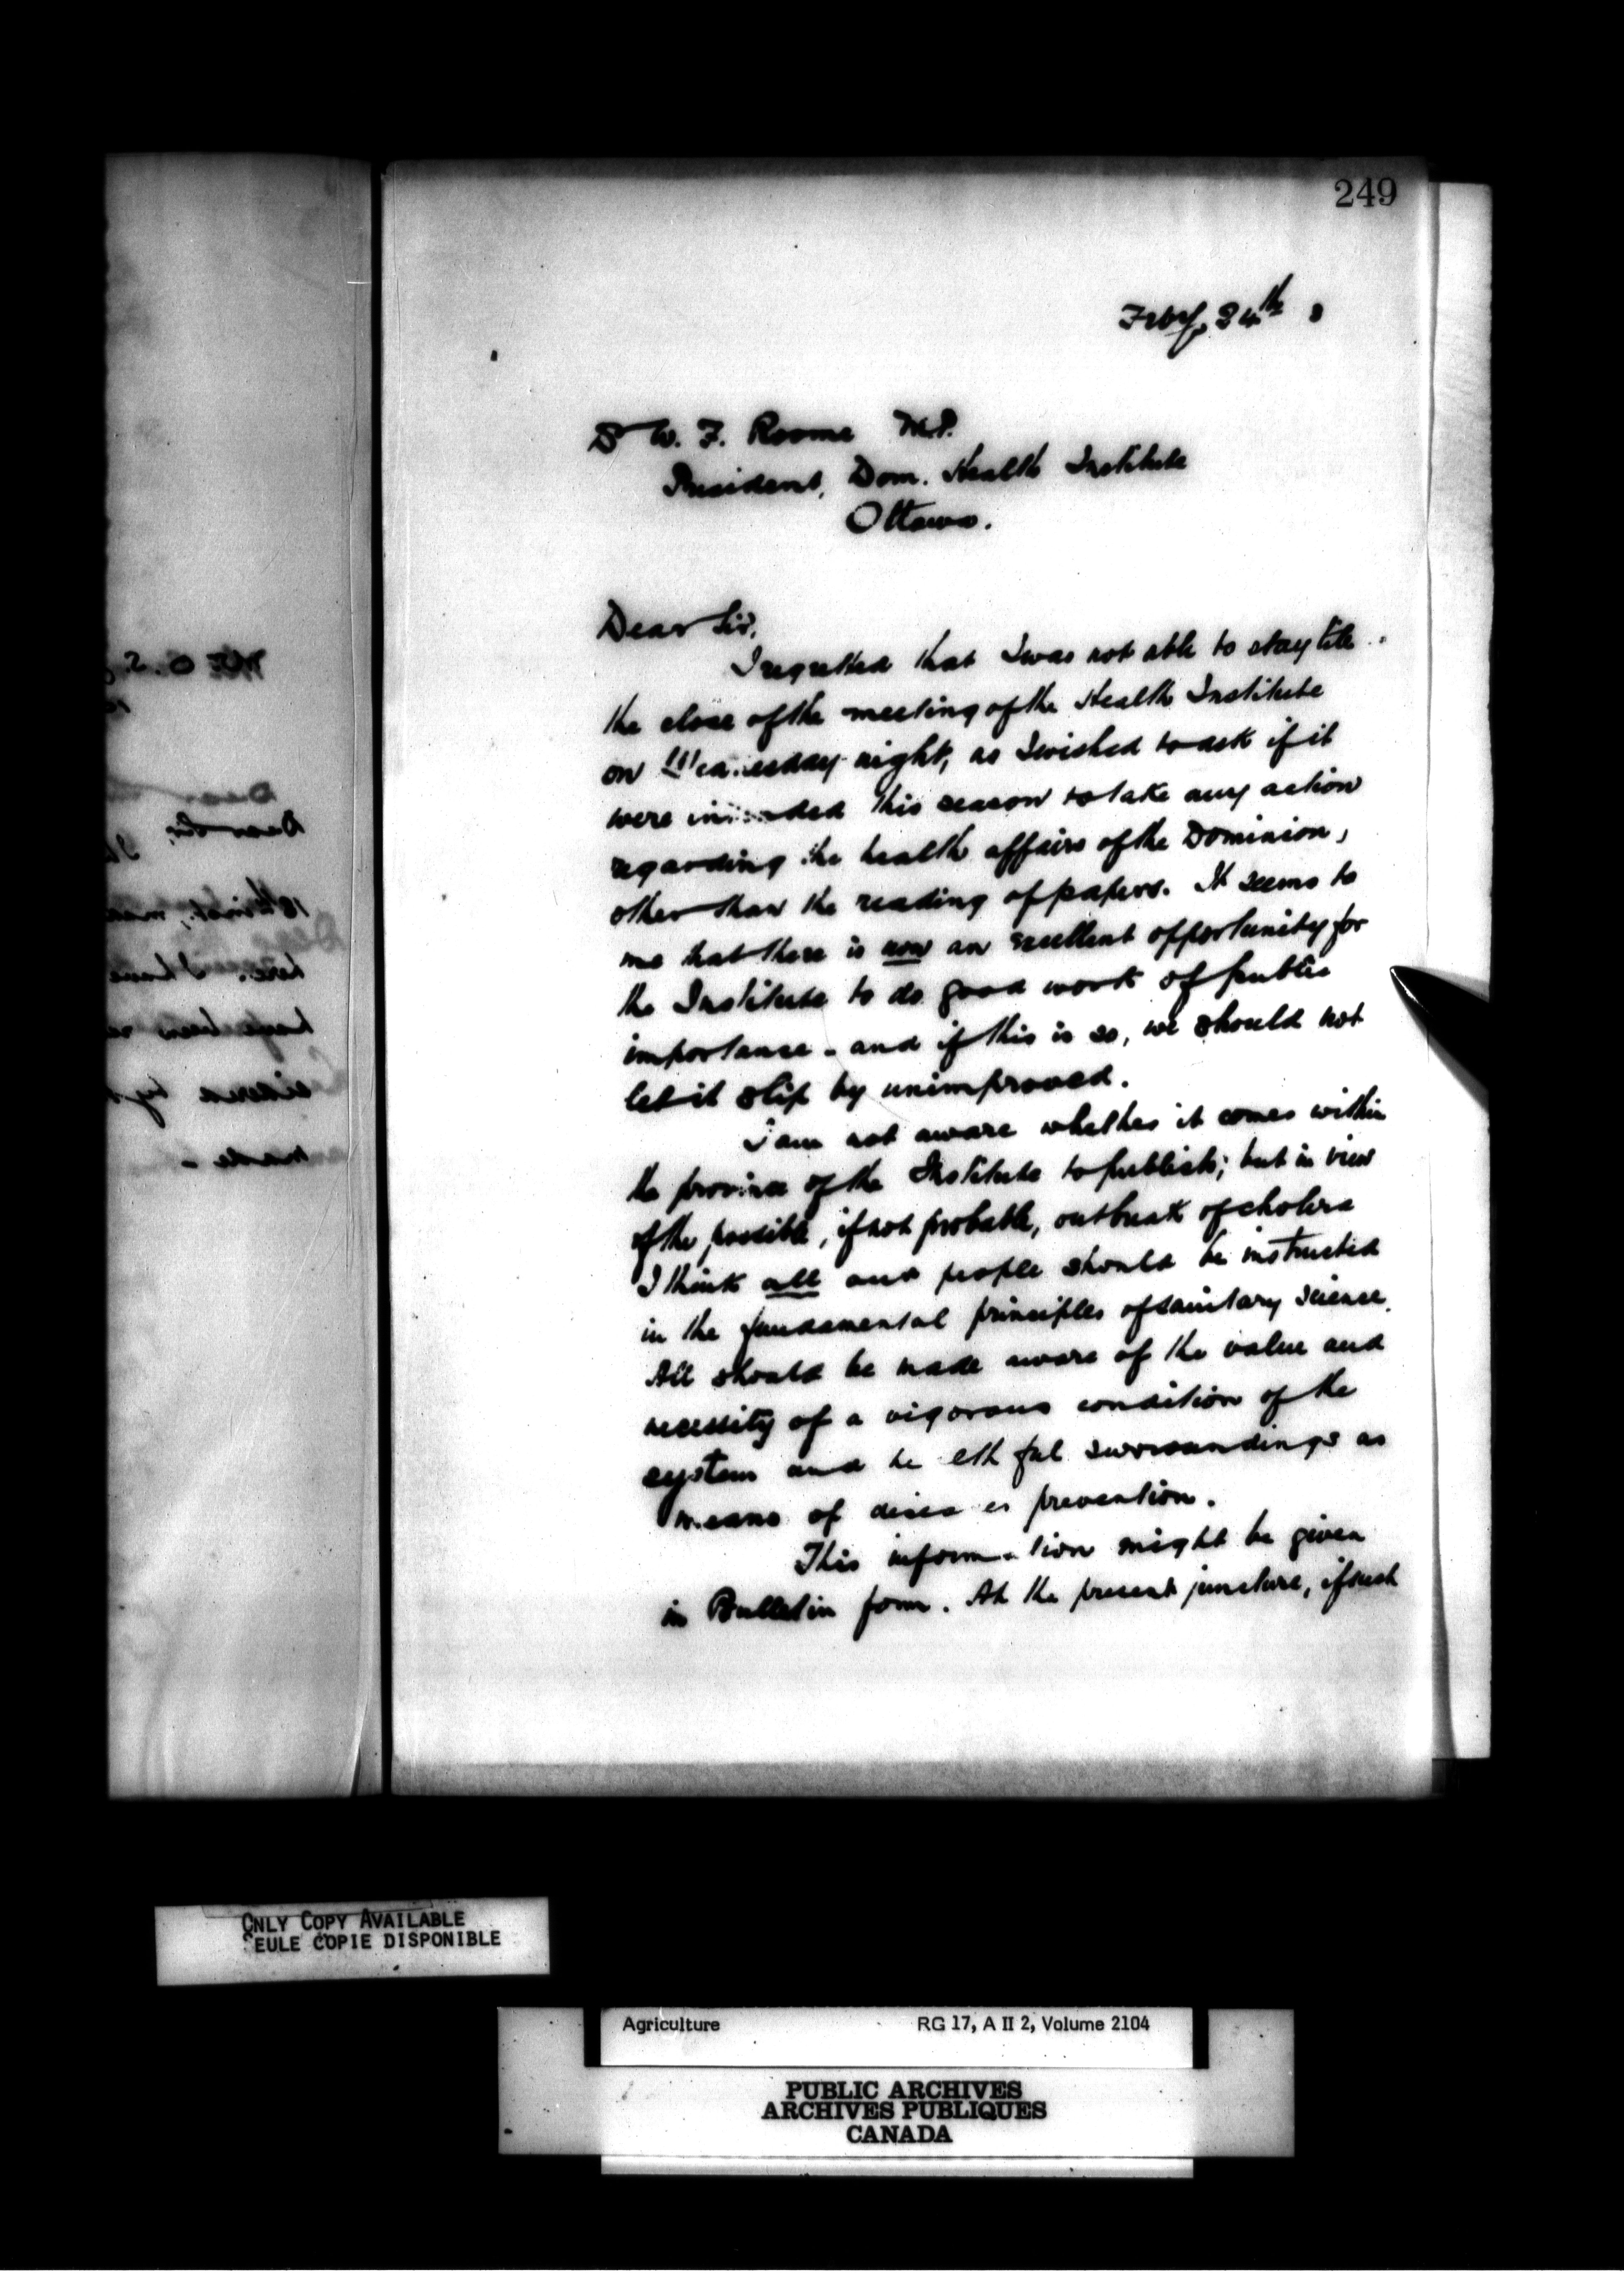 249
Feby. 24th 3
Dr W. F. Roome M.P.
President, Dom. Health Institute
Ottawa.
Dear Sir,
I regretted that I was not able to stay till
the close of the meeting of the Health Institute
on Wednesday night, as I wished to ask if it
were intended this season to take any action
regarding the health affairs of the Dominion,
other than the reading of papers. It seems to
me that there is now an excellent opportunity for
the Institute to do good work of public
importance - and if this is so, we should not
let it slip by unimproved.
I am not aware whether it comes within
the province of the Institute to publish; but in view
of the possible, if not probable, outbreak of cholera
I think all our people should be instructed
in the fundamental principles of sanitary science.
All should be made aware of the value and
necessity of a vigorous condition of the
system and healthful surroundings as
means of disease prevention.
This information might be given
in Bulletin form. At the present juncture, if such
Dear Sir,
here. I have
made -
ONLY COPY AVAILABLE
SEULE COPIE DISPONIBLE
Agriculture RG 17, A II 2, Volume 2104
PUBLIC ARCHIVES
ARCHIVES PUBLIQUES
CANADA